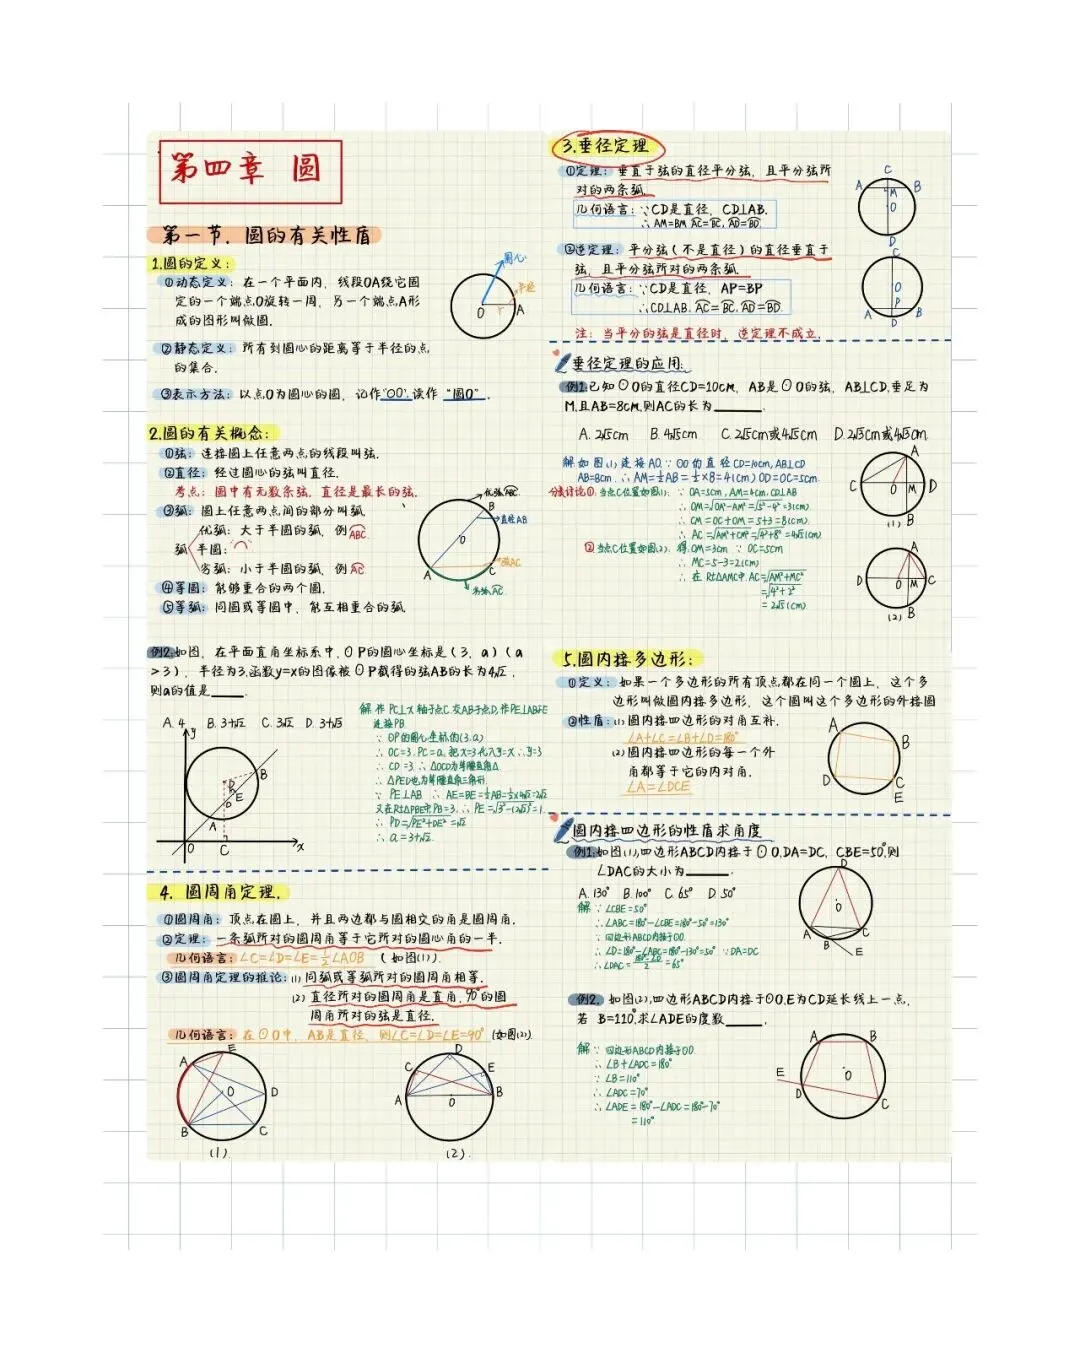 第四章 圆
第一节. 圆的有关性质
1.圆的定义:
①动态定义: 在一个平面内, 线段OA绕它固
定的一个端点O旋转一周, 另一个端点A形
成的图形叫做圆.
圆心
半径
O
r
A
②静态定义: 所有到圆心的距离等于半径的点
的集合.
③表示方法: 以点O为圆心的圆, 记作"⊙O", 读作 "圆O".
2.圆的有关概念:
①弦: 连接圆上任意两点的线段叫弦.
②直径: 经过圆心的弦叫直径.
考点: 圆中有无数条弦, 直径是最长的弦.
③弧: 圆上任意两点间的部分叫弧
优弧: 大于半圆的弧, 例ABC
弧 半圆: "⌒"
劣弧: 小于半圆的弧, 例AC
④等圆: 能够重合的两个圆.
⑤等弧: 同圆或等圆中, 能互相重合的弧.
优弧ABC
B
直径AB
O
弦AC
A
C
劣弧AC
例2.如图, 在平面直角坐标系中, ⊙P的圆心坐标是(3, a)(a
>3), 半径为3,函数y=x的图像被⊙P截得的弦AB的长为4√2,
则a的值是____.
A. 4 B. 3+√2 C. 3√2 D. 3+√3
解 作PC⊥X轴于点C,交AB于点D,作PE⊥AB于E
连接PB.
∵ ⊙P的圆心坐标为(3.a)
∴ OC=3. PC=a. 把x=3代入y=x ∴y=3
∴ CD=3 ∴ △OCD为等腰直角△
∴ △PED也为等腰直角三角形.
∵ PE⊥AB ∴ AE=BE=½AB=½×4√2=2√2
又在Rt△PBE中,PB=3, ∴ PE=√3²-(2√2)²=1
∴ PD=√PE²+DE²=√2
∴ a=3+√2.
y
P
B
E
D
A
O
C
x
4. 圆周角定理.
①圆周角: 顶点在圆上, 并且两边都与圆相交的角是圆周角.
②定理: 一条弧所对的圆周角等于它所对的圆心角的一半.
几何语言: ∠C=∠D=∠E=½∠AOB (如图(1)).
③圆周角定理的推论: (1) 同弧或等弧所对的圆周角相等.
(2) 直径所对的圆周角是直角, 90°的圆
周角所对的弦是直径.
几何语言: 在⊙O中, AB是直径, 则∠C=∠D=∠E=90° (如图(2)).
A
E
O
D
B
C
(1).
D
C
E
A
O
B
(2).
3.垂径定理
①定理: 垂直于弦的直径平分弦, 且平分弦所
对的两条弧.
几何语言: ∵CD是直径, CD⊥AB.
∴ AM=BM, AC=BC, AD=BD.
C
A
M
B
O
D
②逆定理: 平分弦(不是直径)的直径垂直于
弦, 且平分弦所对的两条弧.
几何语言: ∵CD是直径, AP=BP
∴CD⊥AB, AC=BC, AD=BD.
注: 当平分的弦是直径时, 逆定理不成立.
C
O
P
A
D
B
垂径定理的应用:
例1.已知⊙O的直径CD=10cm, AB是⊙O的弦, AB⊥CD,垂足为
M,且AB=8cm,则AC的长为____.
A. 2√5cm B. 4√5cm C. 2√5cm或4√5cm D. 2√3cm或4√3cm
解 如图(1)连接AO. ∵ ⊙O的直径CD=10cm, AB⊥CD
AB=8cm ∴ AM=½AB=½×8=4(cm) OD=OC=5cm.
分类讨论① 当点C位置如图(1): ∵ OA=5cm, AM=4cm, CD⊥AB
∴ OM=√OA²-AM²=√5²-4²=3(cm)
∴ CM=OC+OM=5+3=8(cm).
∴ AC=√AM²+CM²=√4²+8²=4√5(cm)
② 当点C位置如图(2): 得 OM=3cm ∵ OC=5cm
∴ MC=5-3=2(cm)
∴ 在Rt△AMC中 AC=√AM²+MC²
=√4²+2²
=2√5(cm)
A
C
O
M
D
B
(1)
A
D
O
M
C
B
(2)
5.圆内接多边形:
①定义: 如果一个多边形的所有顶点都在同一个圆上, 这个多
边形叫做圆内接多边形, 这个圆叫这个多边形的外接圆
②性质: (1) 圆内接四边形的对角互补.
∠A+∠C=∠B+∠D=180°
(2) 圆内接四边形的每一个外
角都等于它的内对角.
∠A=∠DCE
A
B
D
C
E
圆内接四边形的性质求角度
例1.如图(1),四边形ABCD内接于⊙O,DA=DC, CBE=50°,则
∠DAC的大小为____.
A. 130° B. 100° C. 65° D. 50°
解 ∵∠CBE=50°
∴∠ABC=180°-∠CBE=180°-50°=130°
∵ 四边形ABCD内接于⊙O.
∴∠D=180°-∠ABC=180°-130°=50° ∵DA=DC
∴∠DAC=180°-∠D/2=65°
D
O
A
B
C
E
例2. 如图(2),四边形ABCD内接于⊙O,E为CD延长线上一点,
若 B=110°,求∠ADE的度数____.
解∵ 四边形ABCD内接于⊙O
∴ ∠B+∠ADC=180°
∵ ∠B=110°
∴ ∠ADC=70°
∴ ∠ADE=180°-∠ADC=180°-70°
=110°
A
B
E
O
D
C